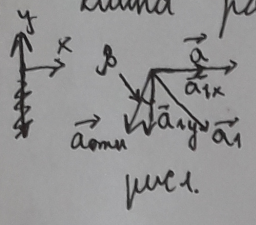 клина
y
x
β
a⃗
a⃗₁ₓ
a⃗отн
a⃗₁y
a⃗₁
рис1.